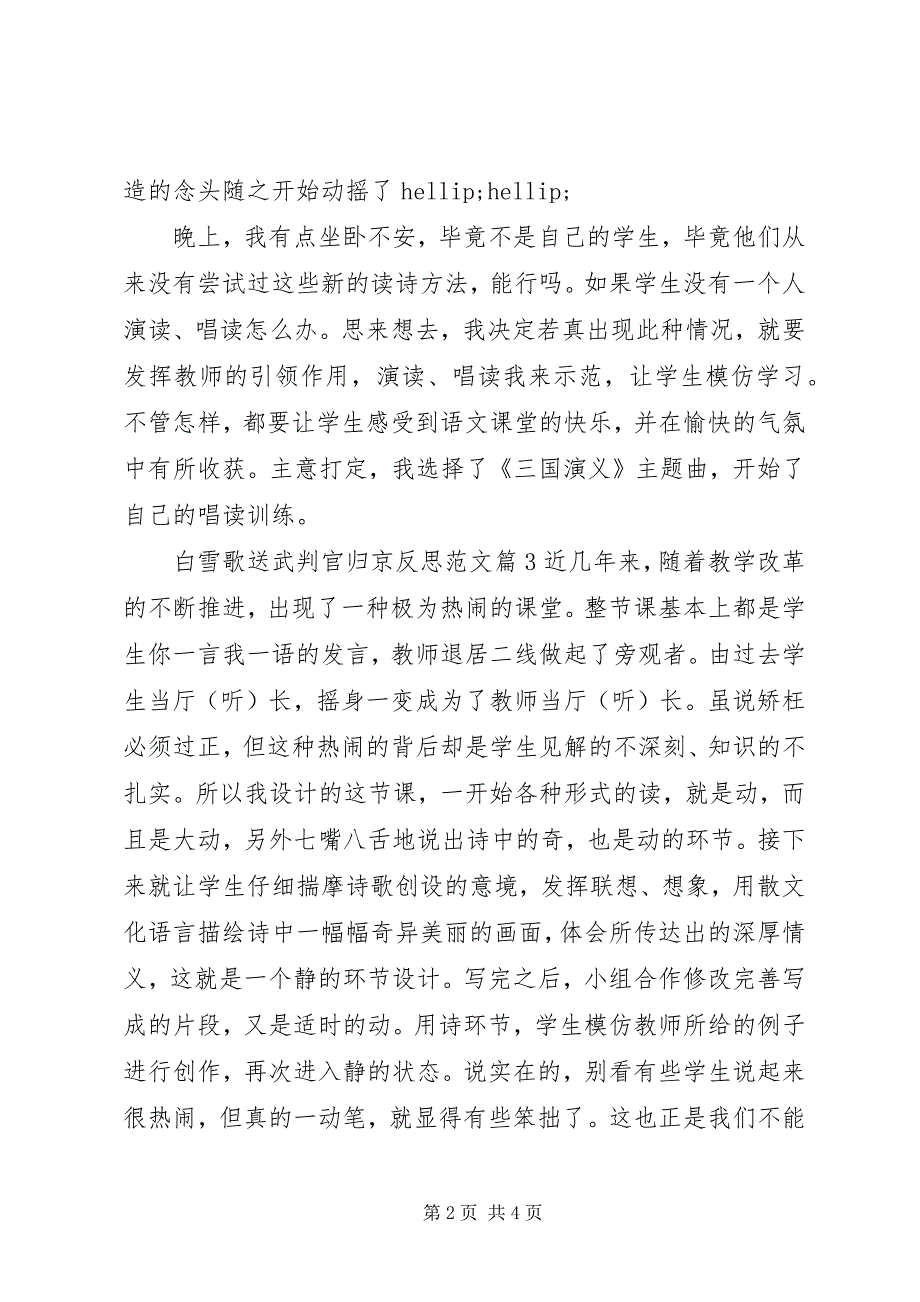 造的念头随之开始动摇了 hellip;hellip;
晚上，我有点坐卧不安，毕竟不是自己的学生，毕竟他们从
来没有尝试过这些新的读诗方法，能行吗。如果学生没有一个人
演读、唱读怎么办。思来想去，我决定若真出现此种情况，就要
发挥教师的引领作用，演读、唱读我来示范，让学生模仿学习。
不管怎样，都要让学生感受到语文课堂的快乐，并在愉快的气氛
中有所收获。主意打定，我选择了《三国演义》主题曲，开始了
自己的唱读训练。
白雪歌送武判官归京反思范文篇 3 近几年来，随着教学改革
的不断推进，出现了一种极为热闹的课堂。整节课基本上都是学
生你一言我一语的发言，教师退居二线做起了旁观者。由过去学
生当厅（听）长，摇身一变成为了教师当厅（听）长。虽说矫枉
必须过正，但这种热闹的背后却是学生见解的不深刻、知识的不
扎实。所以我设计的这节课，一开始各种形式的读，就是动，而
且是大动，另外七嘴八舌地说出诗中的奇，也是动的环节。接下
来就让学生仔细揣摩诗歌创设的意境，发挥联想、想象，用散文
化语言描绘诗中一幅幅奇异美丽的画面，体会所传达出的深厚情
义，这就是一个静的环节设计。写完之后，小组合作修改完善写
成的片段，又是适时的动。用诗环节，学生模仿教师所给的例子
进行创作，再次进入静的状态。说实在的，别看有些学生说起来
很热闹，但真的一动笔，就显得有些笨拙了。这也正是我们不能
第 2 页 共 4 页